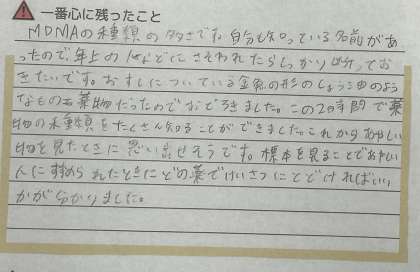 一番心に残ったこと
MDMAの種類の多さです。自分も知っている名前があ
ったので、年上の などにさそわれたらしっかり断ってお
きたいです。おすしについている金魚の形のしょうゆのよう
なものも薬物だったのでおどろきました。この2時間で薬
物の種類をたくさん知ることができました。これからあやしい
物を見たときに思い出せそうです。標本を見ることであやしい
人に すめられたときにどの薬でけいさつにとどければいい
かが分かりました。